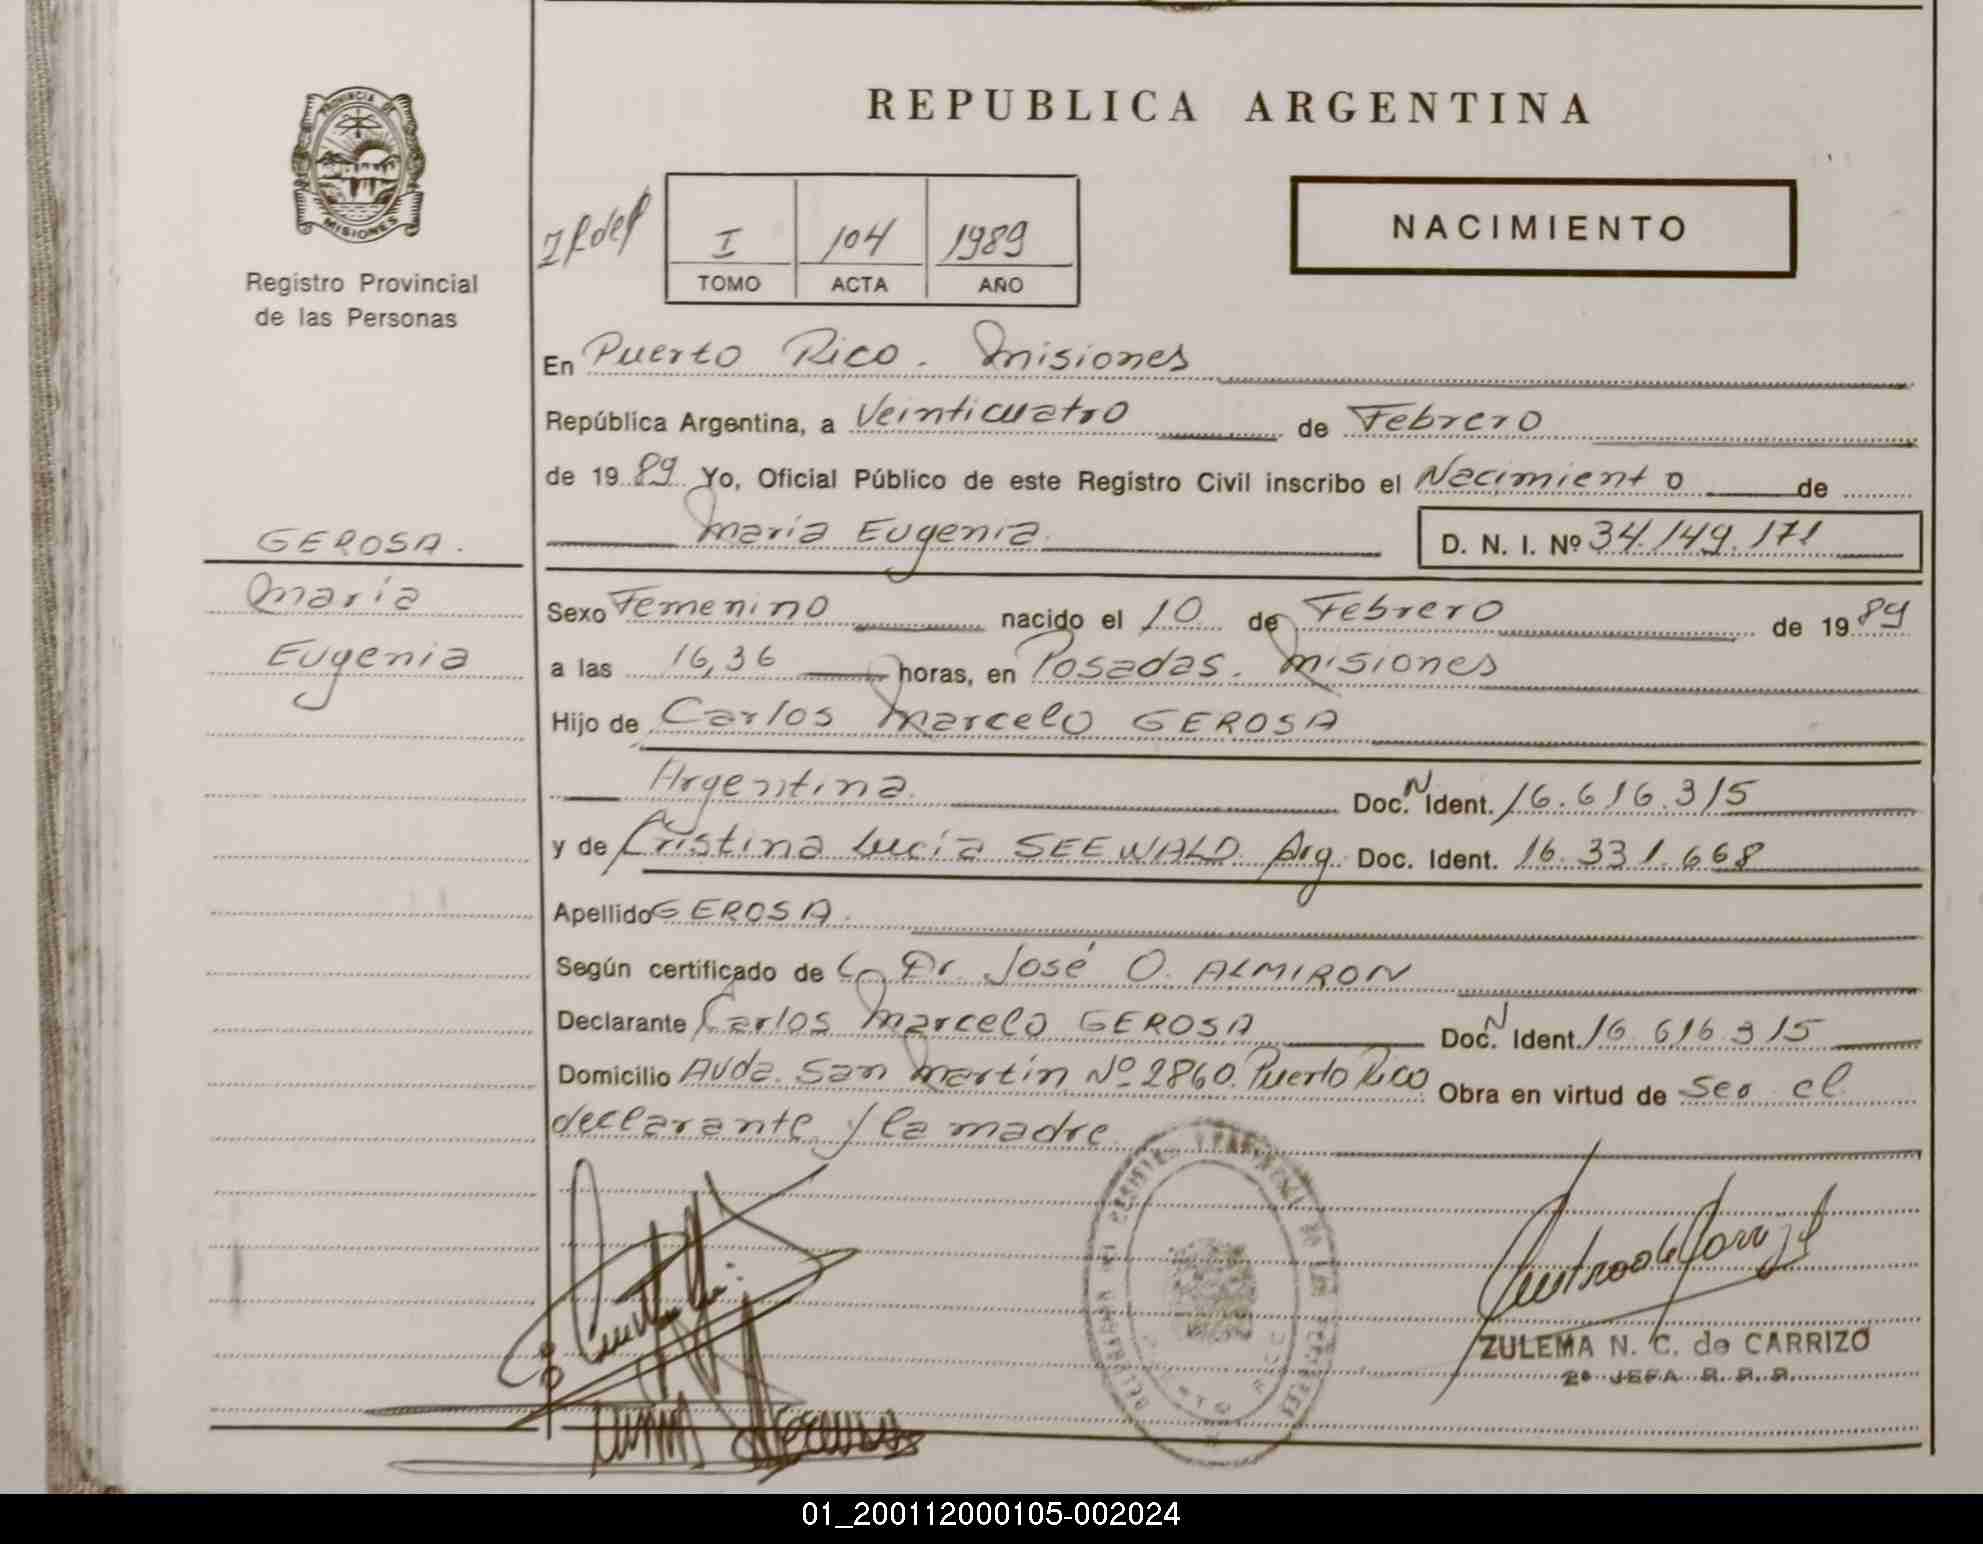 PROVINCIA DE
MISIONES
Registro Provincial
de las Personas
GEROSA.
María
Eugenia
REPUBLICA ARGENTINA
I 104 1989
TOMO ACTA AÑO
NACIMIENTO
En Puerto Rico. Misiones
República Argentina, a Veinticuatro de Febrero
de 1989 Yo, Oficial Público de este Registro Civil inscribo el Nacimiento de
María Eugenia. D. N. I. Nº 34.149.171
Sexo Femenino nacido el 10 de Febrero de 1989
a las 16,36 horas, en Posadas. Misiones
Hijo de Carlos Marcelo GEROSA
Argentina. Doc. N Ident. 16.616.315
y de Cristina Lucía SEEWALD. Arg. Doc. Ident. 16.331.668
Apellido GEROSA.
Según certificado de Dr. José O. ALMIRON
Declarante Carlos Marcelo GEROSA Doc. N Ident. 16.616.315
Domicilio Avda. San Martín Nº 2860. Puerto Rico Obra en virtud de ser el
declarante y la madre.
ZULEMA N. C. de CARRIZO
2ª JEFA R. P. P.
01_200112000105-002024